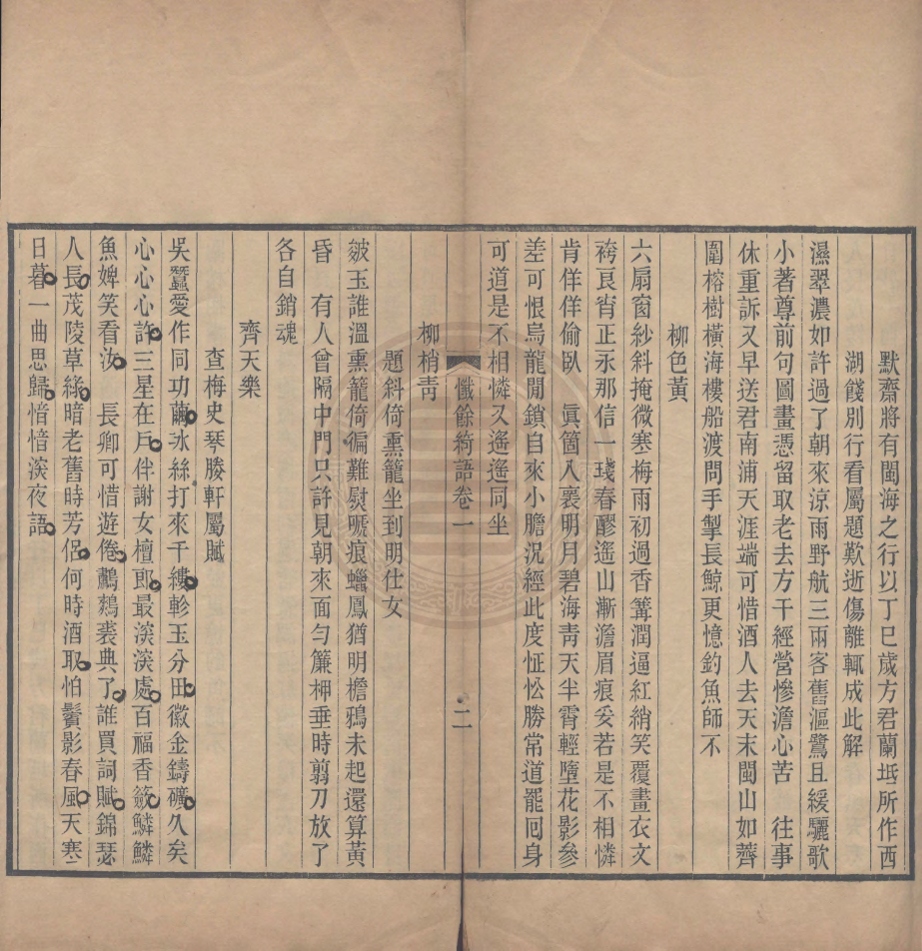 默齋將有閩海之行以丁巳歲方君蘭坻所作西
湖餞別行看屬題歎逝傷離輒成此解
濕翠濃如許過了朝來涼雨野航三兩客舊漚驚且緩驪歌
小著尊前句圖畫憑留取老去方干經營慘澹心苦　往事
休重訴又早送君南浦天涯端可惜酒人去天末閩山如薺
圍榕樹橫海樓船渡問手掣長鯨更憶釣魚師不
柳色黃
六扇窗紗斜掩微寒梅雨初過香篝潤逼紅綃笑覆畫衣文
袴良宵正永那信一琖春醪遙山漸澹眉痕妥若是不相憐
肯佯佯偷臥　眞箇入裹明月碧海靑天半霄輕墮花影參
差可恨烏龍閒鎖自來小膽況經此度怔忪勝常道罷囘身
可道是不相憐又遙遙同坐
懺餘綺語卷一
二
柳梢靑
題斜倚熏籠坐到明仕女
皴玉誰溫熏籠倚偏難熨嗁痕蠟鳳猶明檐鴉未起還算黃
昏　有人曾隔中門只許見朝來面勻簾柙垂時翦刀放了
各自銷魂
齊天樂
查梅史琴塍軒屬賦
吳蠶愛作同功繭冰絲打來千縷軫玉分田徽金鑄礦久矣
心心心許三星在戶伴謝女檀郎最淡淡處百福香篘鱗鱗
魚婢笑看汝　長卿可惜遊倦鸘鷞裘典了誰買詞賦錦瑟
人長茂陵草綠暗老舊時芳侶何時酒取怕鬢影春風天寒
日暮一曲思歸愔愔淡夜語